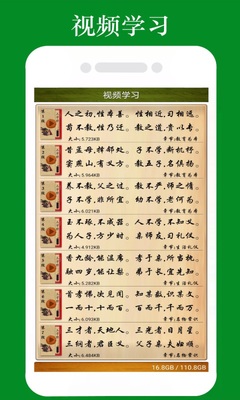 视频学习
视频学习
人之初,性本善。 性相近,习相远。
苟不教,性乃迁。 教之道,贵以专。
大小:5.723KB 章节:教育为本
昔孟母,择邻处。 子不学,断机杼。
窦燕山,有义方。 教五子,名俱扬。
大小:5.964KB 章节:教育为本
养不教,父之过。 教不严,师之惰。
子不学,非所宜。 幼不学,老何为。
大小:6.021KB 章节:教育为本
玉不琢,不成器。 人不学,不知义。
为人子,方少时。 亲师友,习礼仪。
大小:4.912KB 章节:生活礼仪
香九龄,能温席。 孝于亲,所当执。
融四岁,能让梨。 弟于长,宜先知。
大小:6.292KB 章节:生活礼仪
首孝悌,次见闻。 知某数,识某文。
一而十,十而百。 百而千,千而万。
大小:6.093KB 章节:名物常识
三才者,天地人。 三光者,日月星。
三纲者,君臣义。 父子亲,夫妇顺。
大小:6.484KB 章节:名物常识
16.8GB / 110.8GB